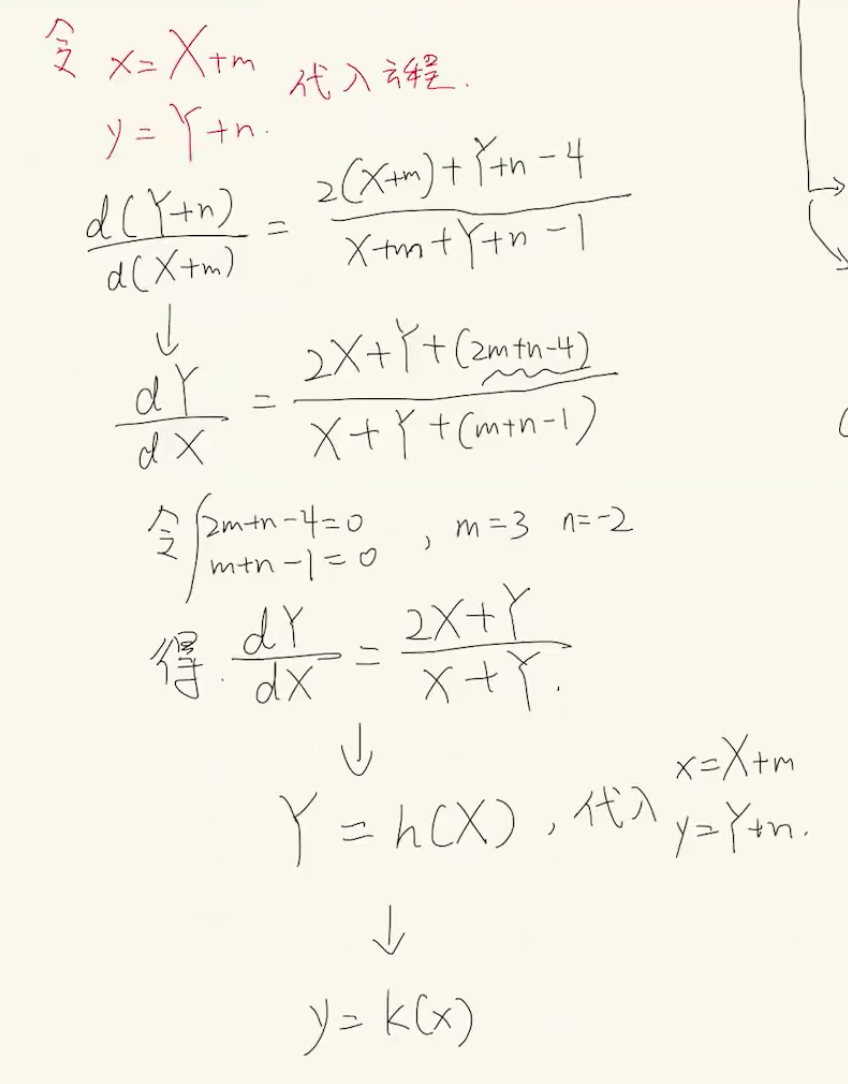 令 x=X+m 代入方程.
y=Y+n.
d(Y+n)/d(X+m) = (2(X+m)+Y+n-4)/(X+m+Y+n-1)
↓
dY/dX = (2X+Y+(2m+n-4))/(X+Y+(m+n-1))
令 {2m+n-4=0
m+n-1=0 , m=3 n=-2
得. dY/dX = (2X+Y)/(X+Y).
↓
Y=h(X), 代入 x=X+m
y=Y+n.
↓
y=k(x)